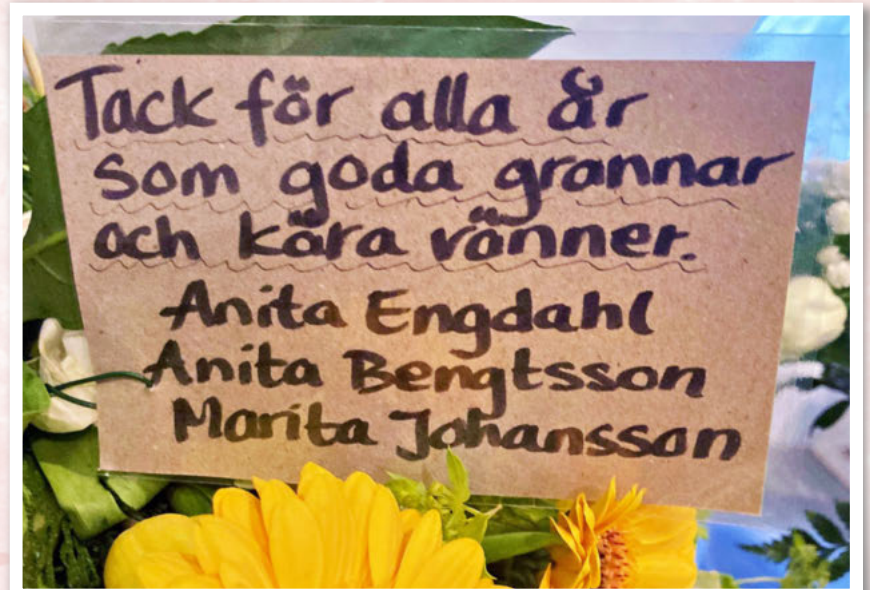 Tack för alla år
som goda grannar
och kära vänner.
Anita Engdahl
Anita Bengtsson
Marita Johansson